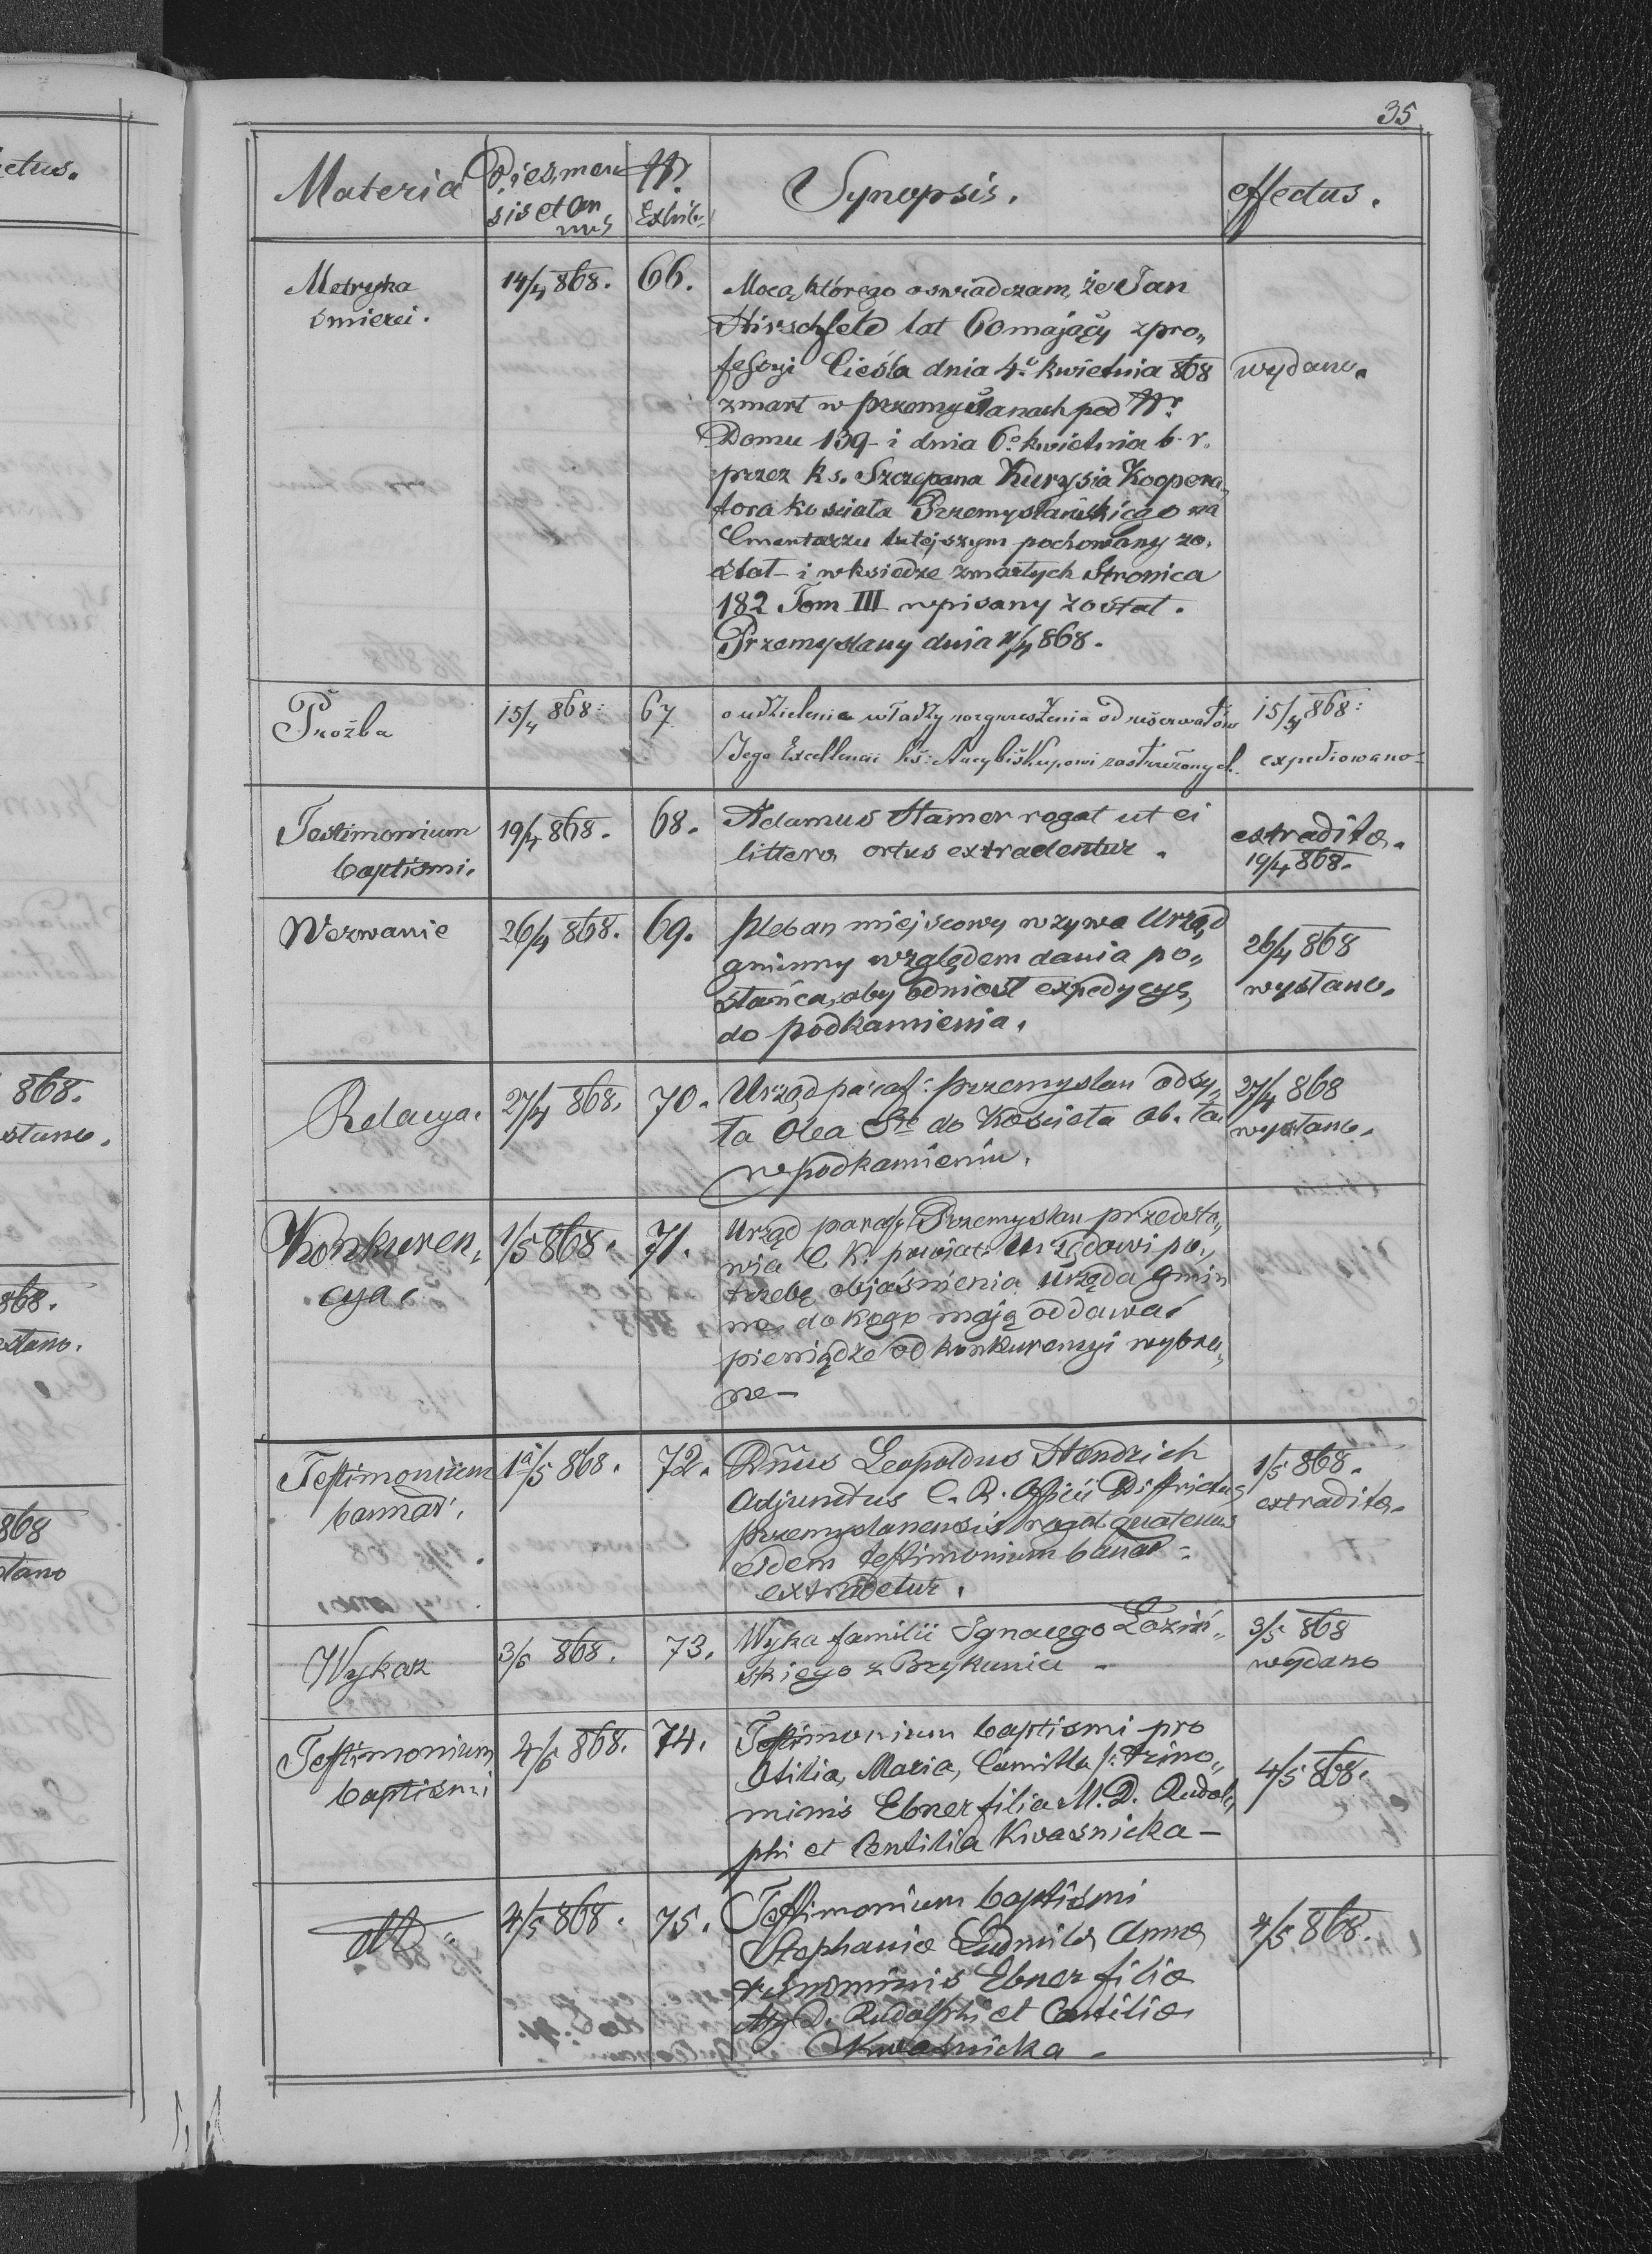 35
Materia Dies, men- sis et an nus Nr. Exhib. Synopsis. effectus.
Metryka
śmierci.
14/4 868. 66.
Mocą, którego oswiadczam, że Jan
Hirschfeld lat 60 mający z pro„
fessyi Cieśla dnia 4º kwietnia 868
zmarł w przemyślanach pod Nr
Domu 139 - i dnia 6º kwietnia b. r.
przez ks. Szczepana Kurysia Koopera„
tora kościoła Przemyślańskiego na
Cmentarzu tutejszym pochowany zo„
stał - i w ksiedze zmarłych Stronica
182 Tom III wpisany został.
Przemyslany dnia 868.
wydano.
Proźba
15/4 868: 67
o udzielenie władzy rozgrzeszenia od reserwatów
Jego Excellencii ks: Arcybiskupowi zastrzeżonych.
15/4 868:
expediowano-
Testimonium
baptismi.
19/4 868. 68.
Adamus Hamer rogat ut ei
littera ortus extradentur.
extradita.
19/4 868.
Wezwanie
26/4 868. 69.
pleban miejscowy wzywa Urząd
gminny względem dania po„
słańca, aby odniosł expedycyę,
do podkamienia.
26/4 868
wysłano.
Relacya.
27/4 868. 70.
Urząd paraf: przemyslan odsy„
ła Olea Sta do Kościoła ob. łac
w podkamieniu.
27/4 868
wysłano.
Konkuren„
cya.
1/5 868. 71.
Urząd paraf: Przemyslan przedsta„
wia C. K. powiat: Urzędowi po„
trzebę objaśnienia Urzęda gmin
ne do kogo mają oddawać
pieniądze od konkurencyi wybra„
ne -
Testimonium
bannor.
1a/5 868. 72.
Dnus Leopoldus Hendrich
Adjunctus C. R. Officii Districtus
przemyslanensis rogat quatenus
eidem testimonium banor -
extradetur.
1/5 868.
extradita.
Wykaz
3/5 868. 73.
Wyka familii Ignacego Łoziń„
skiego z Brykunia -
3/5 868
wydano
Testimonium
baptismi
4/5 868. 74.
Testimonium baptismi pro
Otilia, Maria, Camilla trino„
minis Ebner filia M. D. Rudol„
phi et Centilia Kwasnicka -
4/5 868.
4/5 868. 75.
Testimonium baptismi
Stephania Ludmila Anna
trinominis Ebner filia
Mg D. Rudolphi et Centilia
Kwasnicka -
4/5 868.